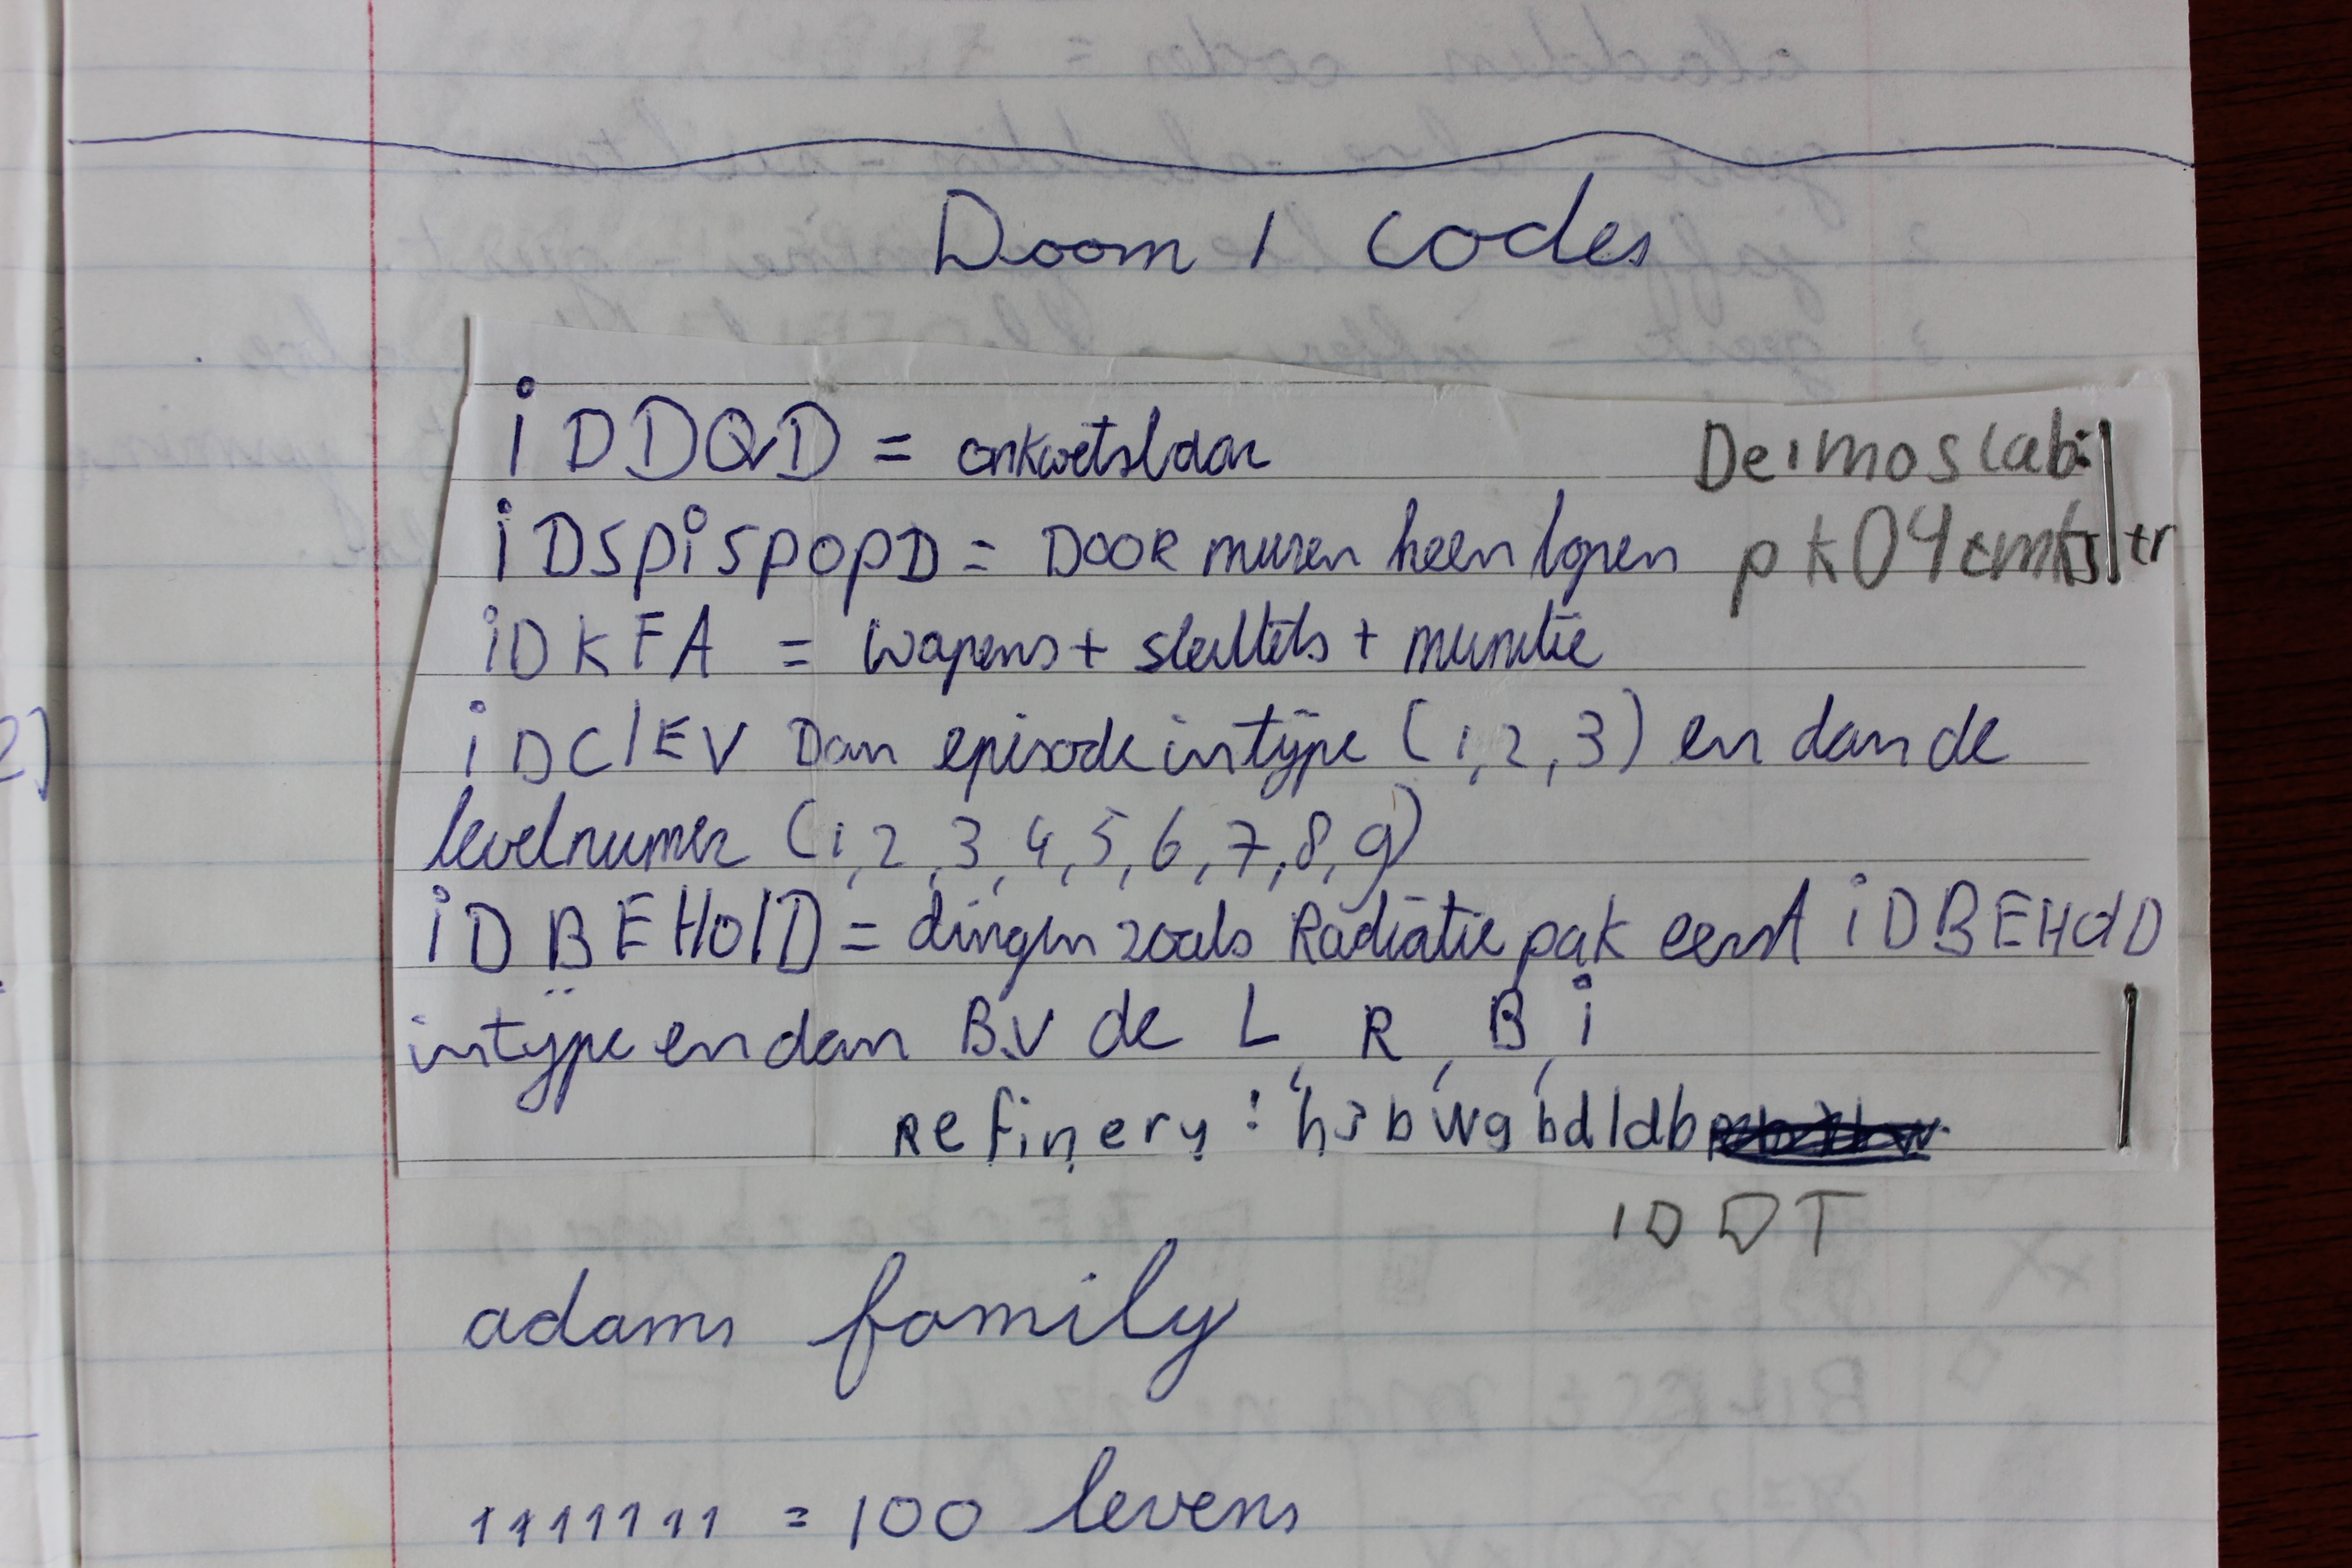 Doom 1 codes
iDDQD = onkwetsbaar
Deimos lab:
iDSpiSpOpD = DOOR muren heen lopen
pk04
tr
iDKFA = wapens + sleutels + munitie
iDClEV Dan episode intÿpe (1, 2, 3) en dan de
levelnumer (1, 2, 3, 4, 5, 6, 7, 8, 9)
iDBEHolD = dingen zoals Radiatie pak eerst iDBEHolD
intÿpe en dan B.V de L, R, B, i
Refinery: h3bwgbdldb
IDDT
adams family
1111111 = 100 levens